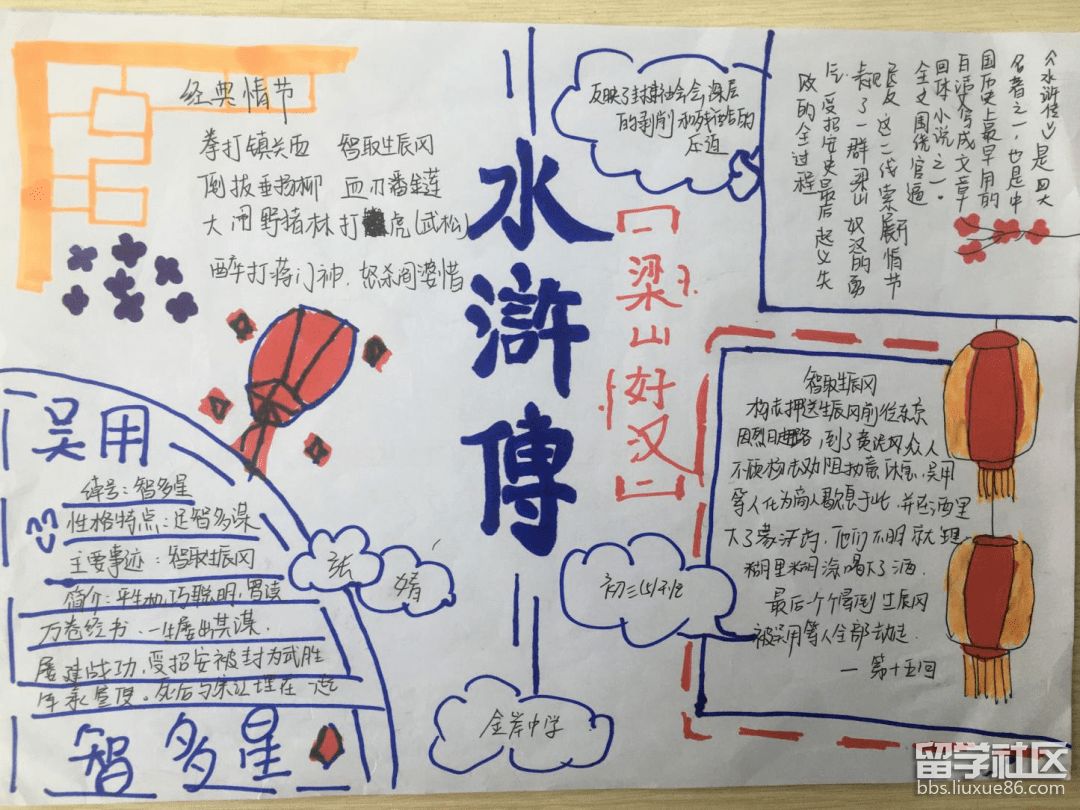 经典情节
拳打镇关西 智取生辰冈
倒拔垂扬柳 血刃番金莲
大闹野猪林 打虎(武松)
醉打蒋门神. 怒杀阎婆惜
水滸傳
【梁山好汉】
反映了封建社会会深层
的剥削和残
压迫
《水浒传》是四大
名著之一,也是中
国历史上最早用的
白话文写成文章
回体小说之一。
全文围绕官逼
民反这一线索展开情节
表现了一群梁山好汉的
受招安史最后起义失
败的全过程
吴用
绰号:智多星
性格特点:足智多谋
主要事迹:智取生辰冈
简介:平生机巧聪明,曾读
万卷经书.一生屡出其谋.
屡建战功,受招安被封为武胜
军承宣使。死后与朱让埋在一起
智多星
张
婧
初三(5)
金岸中学
智取生辰冈
杨志押送生辰冈前位东京
因烈日,到了黄泥冈众人
不顾杨志劝阻执意休息,吴用
等人化为商人歇息于此,并在酒里
大了蒙汗药,他们不明就理
糊里糊涂喝下了酒.
最后个个晕倒生辰冈
被吴用等人全部劫走.
— 第十五回
留学社区
bbs.liuxue86.com